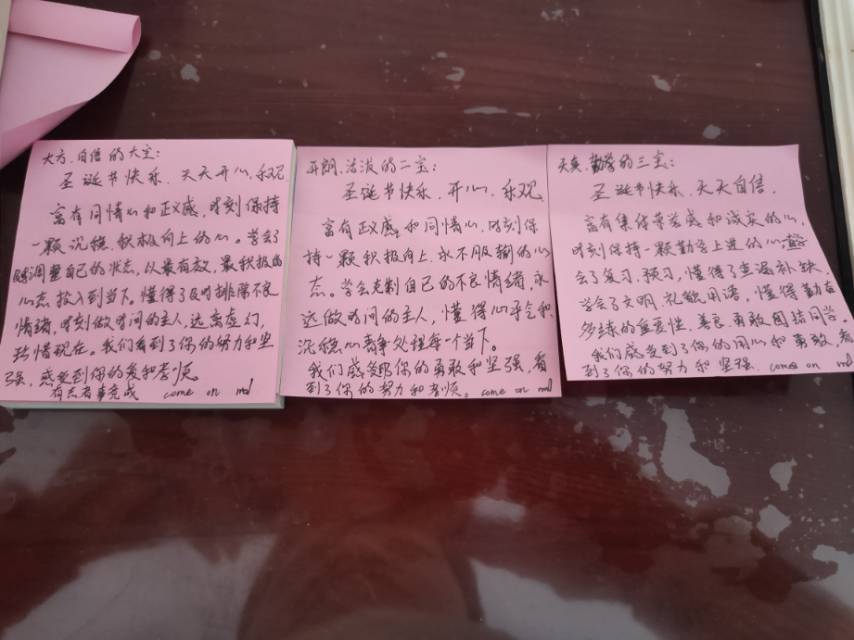 大方、自信的大宝：
圣诞节快乐、天天开心、乐观
富有同情心和正义感，时刻保持
一颗沉稳、积极向上的心。学会了
随时调整自己的状态，以最有效、最积极的
心态投入到当下。懂得了及时排除不良
情绪，时刻做时间的主人，远离虚幻，
珍惜现在。我们看到了你的努力和坚
强，感受到你的爱和孝顺。
有志者事竟成 come on
开朗、活泼的二宝：
圣诞节快乐、开心、乐观
富有正义感和同情心，时刻保
持一颗积极向上、永不服输的心
态。学会克制自己的不良情绪，永
远做时间的主人，懂得心平气和、
沉稳、心静处理每个当下。
我们感受到你的勇敢和坚强，看
到了你的努力和孝顺。come on
天真、勤学的三宝：
圣诞节快乐、天天自信、
富有集体荣誉感和诚实的心，
时刻保持一颗勤学上进的心，学
会了复习、预习，懂得了查漏补缺，
学会了文明、礼貌用语，懂得勤在
多练的重要性，善良、勇敢、团结同学。
我们感受到了你的用心和勇敢，看
到了你的努力和坚强。come on